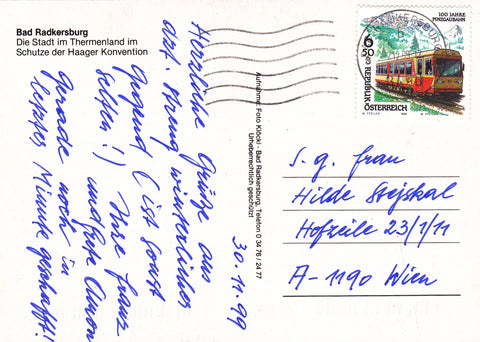 Bad Radkersburg
Die Stadt im Thermenland im
Schutze der Haager Konvention
Herzliche Grüße aus
winterlicher
Gegend (ist sonst
selten!) Ihre Franz
und Grete
Gerade noch in
letzter Minute geschafft!
30.11.99
Aufnahme: Foto Klöckl · Bad Radkersburg, Telefon 0 34 76 / 24 77
Urheberrechtlich geschützt
100 JAHRE
PINZGAUBAHN
6
50
REPUBLIK
ÖSTERREICH
S. g. Frau
Hilde Stejskal
Hofzeile 23/1/11
A-1190 Wien